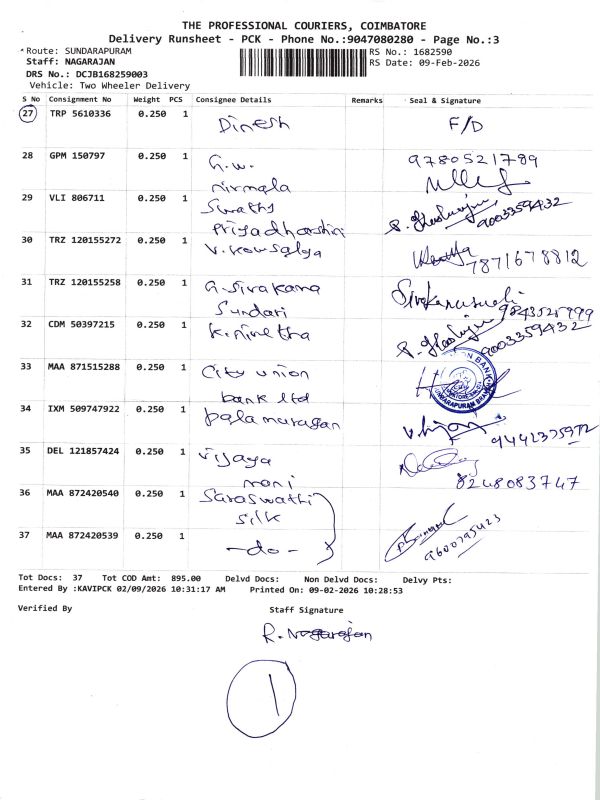 THE PROFESSIONAL COURIERS, COIMBATORE
Delivery Runsheet - PCK - Phone No.:9047080280 - Page No.:3
Route: SUNDARAPURAM RS No.: 1682590
Staff: NAGARAJAN RS Date: 09-Feb-2026
DRS No.: DCJB168259003
Vehicle: Two Wheeler Delivery
S No Consignment No Weight PCS Consignee Details Remarks Seal & Signature
27 TRP 5610336 0.250 1 Dinesh F/D
28 GPM 150797 0.250 1 G.W. 9780521789
Nirmala
29 VLI 806711 0.250 1 Swathi
Priyadharshini 9003359432
30 TRZ 120155272 0.250 1 V. Kowsalya
7871678812
31 TRZ 120155258 0.250 1 G. Sivakama Sivakamasundari
Sundari
32 CDM 50397215 0.250 1 K. Ninetha 9003359432
33 MAA 871515288 0.250 1 City union
bank ltd
34 IXM 509747922 0.250 1 balamurugan
9442375972
35 DEL 121857424 0.250 1 Vijaya
rani 8248083747
36 MAA 872420540 0.250 1 Saraswathi
Silk
37 MAA 872420539 0.250 1 -do- 9600795423
Tot Docs: 37 Tot COD Amt: 895.00 Delvd Docs: Non Delvd Docs: Delvy Pts:
Entered By :KAVIPCK 02/09/2026 10:31:17 AM Printed On: 09-02-2026 10:28:53
Verified By Staff Signature
R. Nagarajan
1